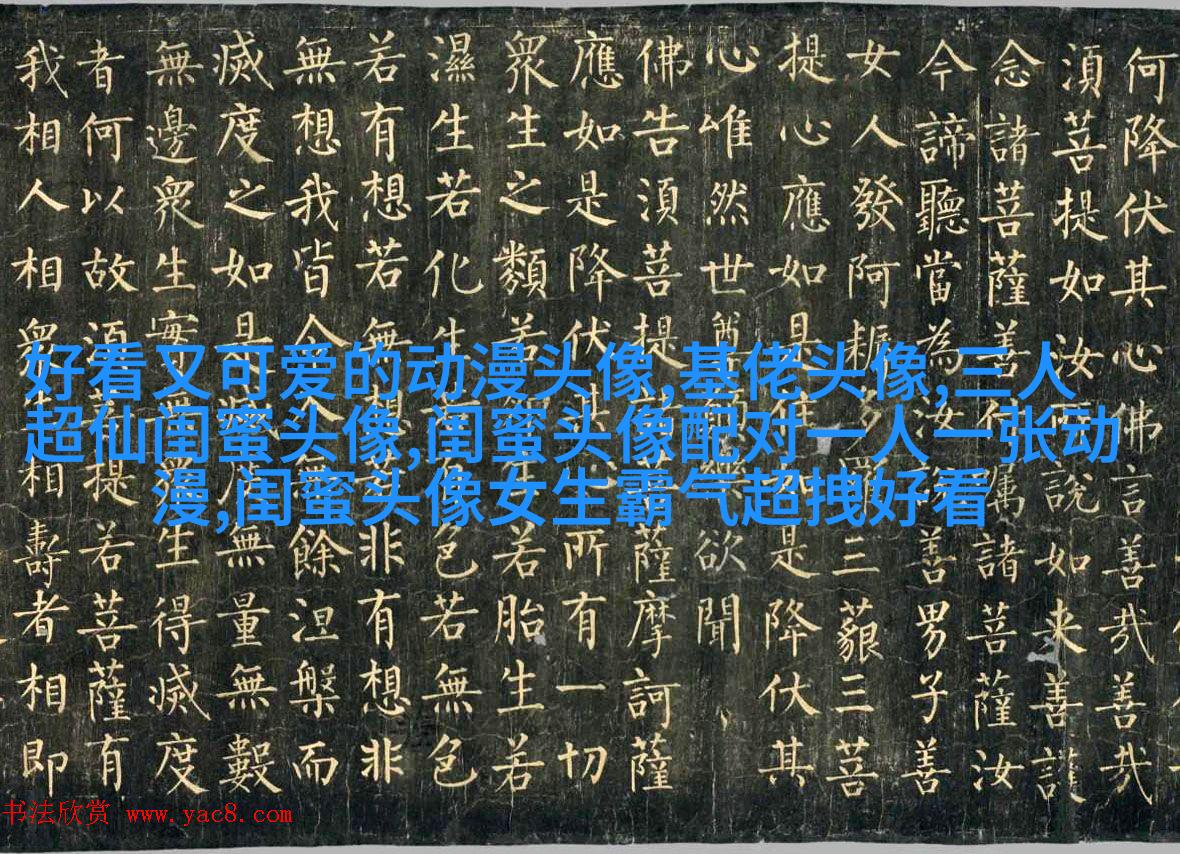 何降伏其心佛言善哉善哉
須菩提如汝所說如来善護
念諸菩薩善付囑諸菩薩汝
今諦聽當為汝說善男子善
女人發阿耨多羅三藐三菩
提心應如是住如是降伏其
心唯然世尊願樂欲聞
佛告須菩提諸菩薩摩訶薩
應如是降伏其心所有一切
衆生之類若卵生若胎生若
濕生若化生若有色若無色
若有想若無想若非有想非
無想我皆令入無餘涅槃而
滅度之如是滅度無量無數
無邊衆生實無衆生得滅度
者何以故須菩提若菩薩有
我相人相衆生相壽者相即
好看又可爱的动漫头像,基佬头像,三人
超仙闺蜜头像,闺蜜头像配对一人一张动
漫,闺蜜头像女生霸气超拽好看
书法欣赏 www.yac8.com